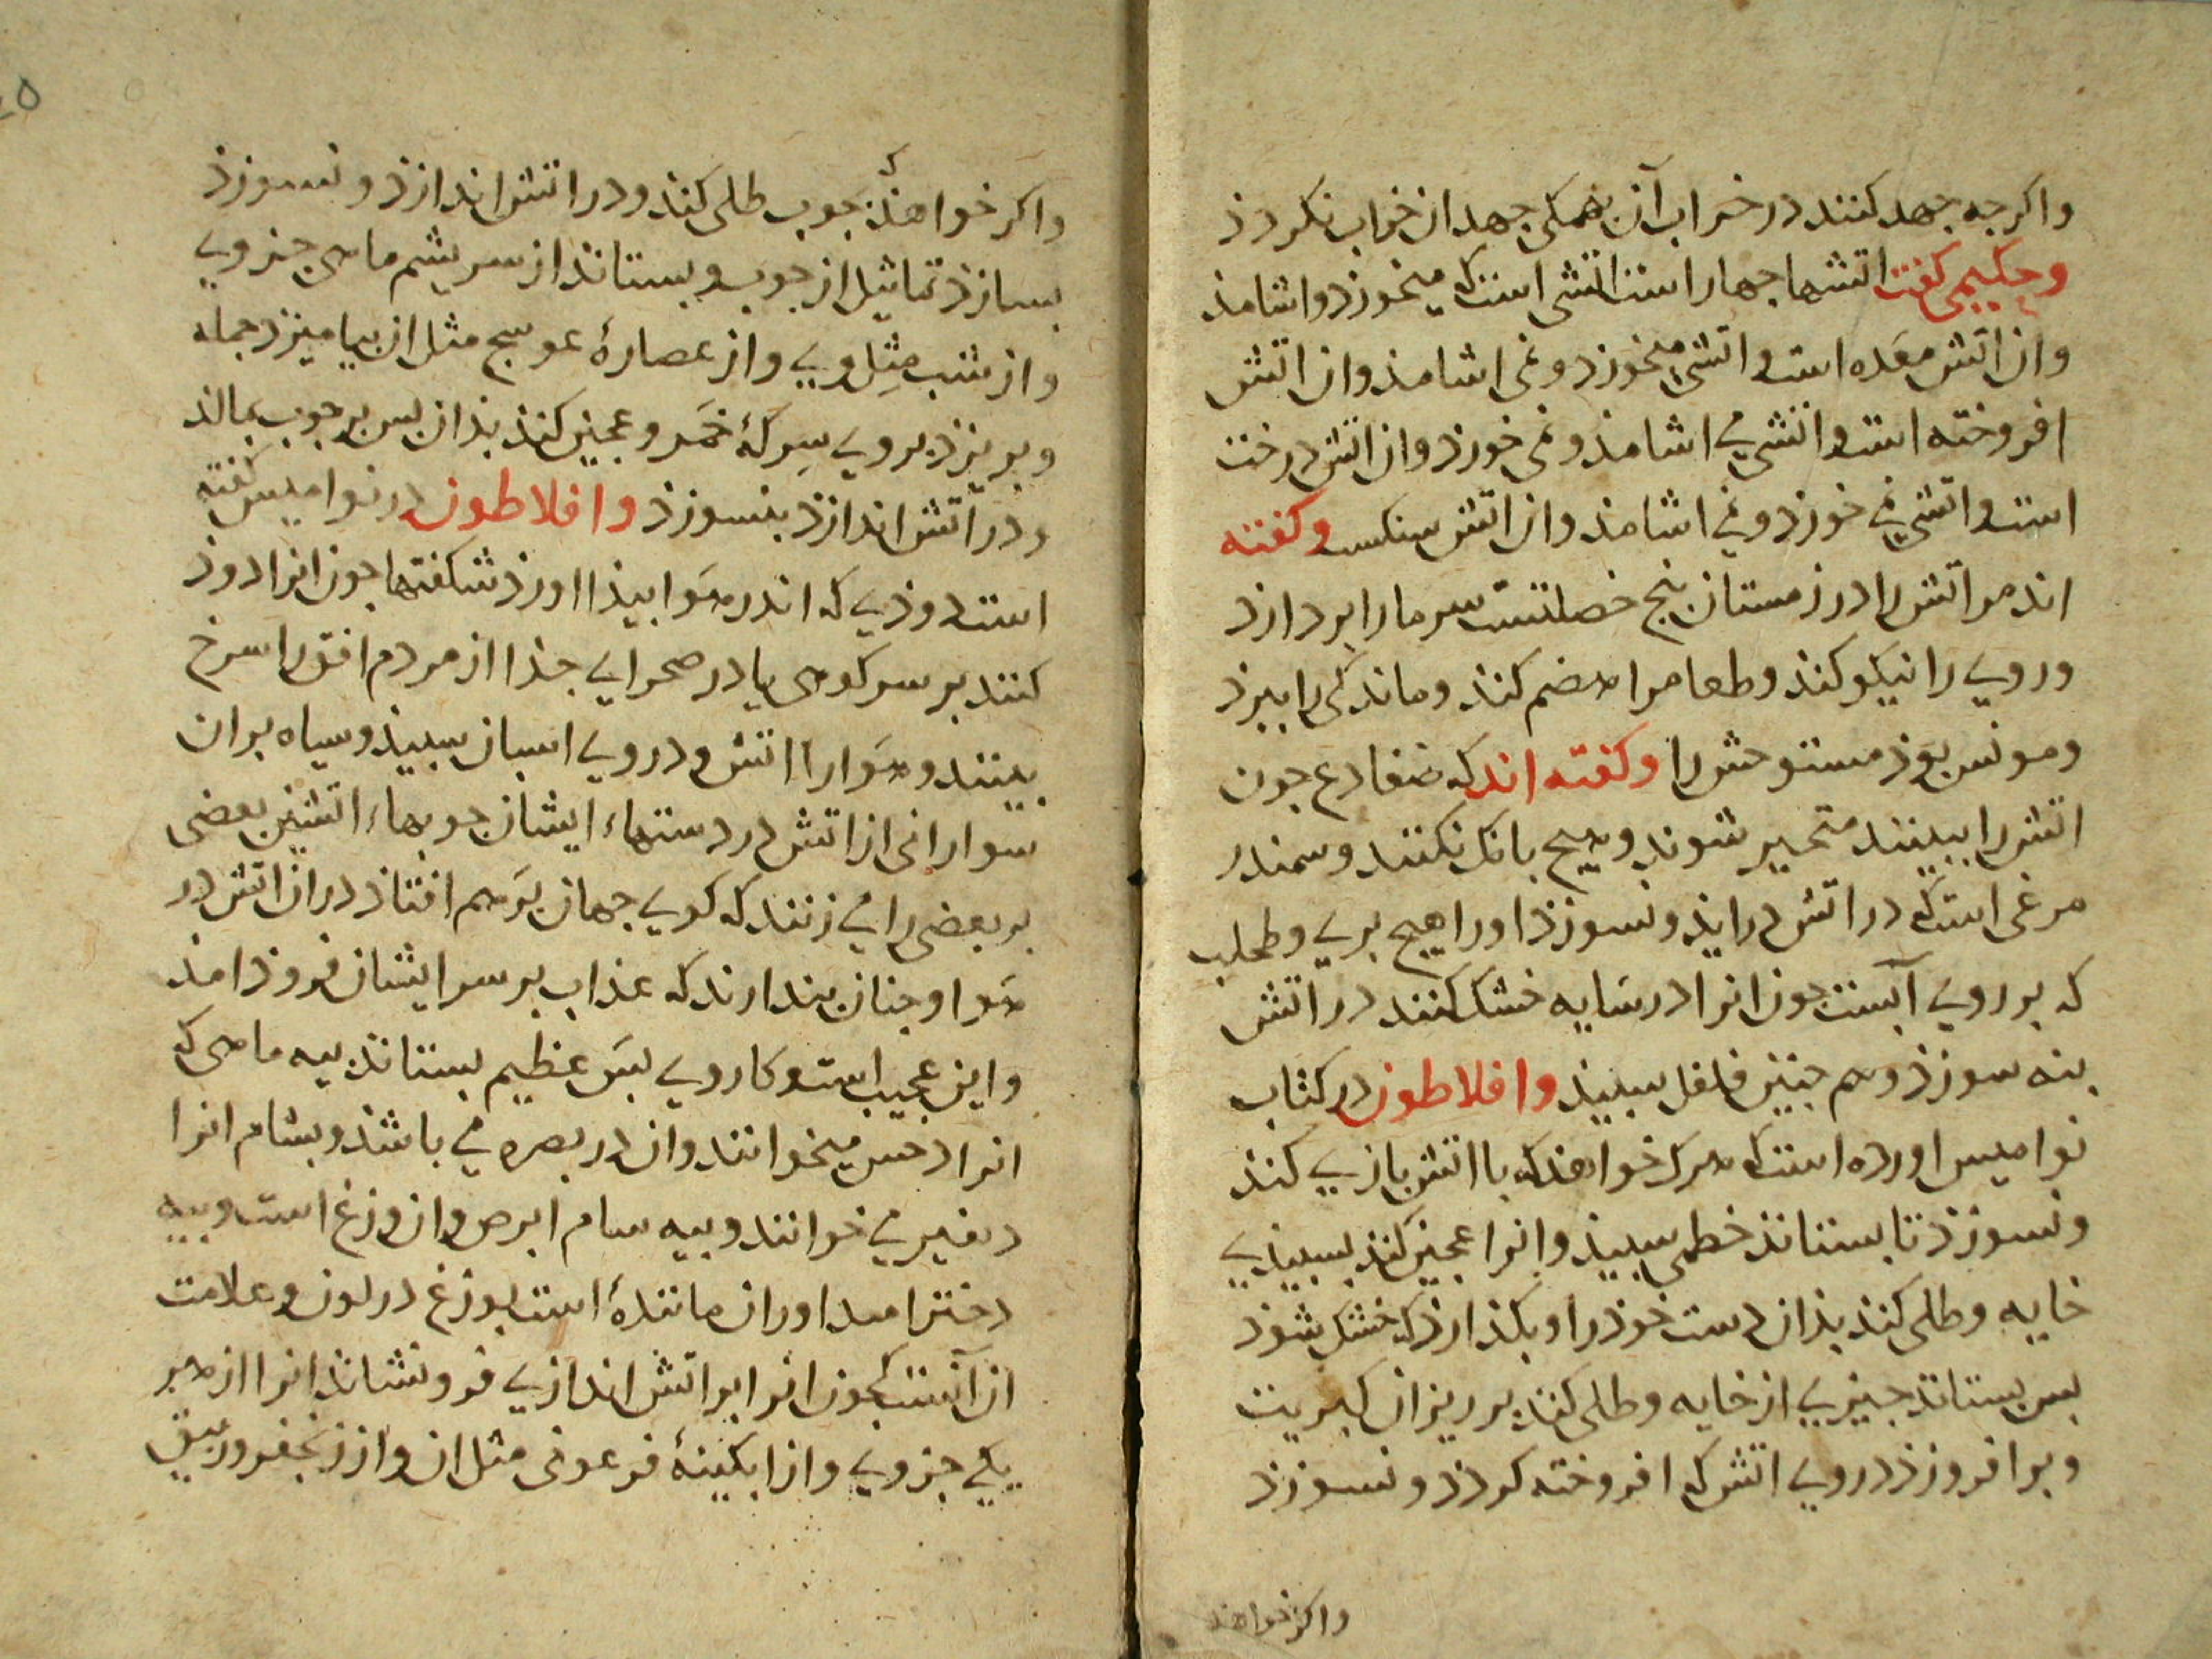 واکرجه جهد کنند در خراب آن بهمکی جهد ان خراب نکردذ
وحکیمی کفت اتشها جهار است اتشی است که میخورذ واشامذ
وان اتش معده است واتشی میخورد ونمی اشامذ وان اتش
افروخته است واتشی می اشامذ ونمی خورذ وان اتش درخت
است واتشی نمی خورذ ونمی اشامذ وان اتش سنکست وکفته
اند مر اتش را در زمستان پنج خصلتست سرما را بردارذ
وروی را نیکو کنذ وطعام را هضم کنذ وماندکی را ببرذ
ومونس بوذ مستوحش را وکفته اند که ضفادع جون
اتش را ببینند متحیر شوند وهیج بانک نکنند وسمندر
مرغی است که در اتش درایذ ونسوزذ اورا هیج بری وطحلب
که بر روی آبست جون انرا در سایه خشک کنند در اتش
بنه سوزذ وهم جنین فلفل سبیذ وافلاطون در کتاب
نوامیس اورده است که هرک خواهذ که با اتش بازی کنذ
ونسوزذ تا بستاند خطمی سبیذ وانرا عجین کند بسبیذی
خایه وطلی کند بذان دست خوذ را وبکذارذ که خشک شوذ
بس بستاند جیزی از خایه وطلی کند بر ریزان کبریت
وبرافروزذ در روی اتش که افروخته کردذ ونسوزذ
واکر خواهذ
واکر خواهذ که جوب طلی کنذ ودر اتش اندازذ ونسوزذ
بسازذ تماثیل از جوب وبستاند از سریشم ماهی جزوی
واز شب مثل وی واز عصارۀ عوسج مثل ان بیامیزد جمله
وبریزد بر وی سرکۀ خمر وعجین کند بذان بس بر جوب بمالذ
ودر آتش اندازذ بنسوزذ وافلاطون در نوامیس کفته
است دوذی که اندر هوا بیذا اورذ شکفتها جون انرا دوذ
کنند بر سر کوهی یا در صحرایی جذا از مردم افق را سرخ
بینند وهوا را اتش ودر وی اسبان سبیذ وسیاه بران
سوارانی از اتش در دستهاء ایشان جوبهاء اتشین بعضی
بر بعضی را می زنند که کویی جهان برهم افتاد دران اتش در
هوا وجنان بندارند که عذاب بر سر ایشان فروذ امذ
واین عجیب است وکار وی بس عظیم بستاند بیه ماهی که
انرا دحس میخوانند وان در بصره می باشذ وبشام انرا
می خوانند وبیه سام ابرص وان وزغ است وبیه
دختر اوران مانندۀ است بوزغ در لون وعلامت
ان آنست که جون انرا بر اتش اندازی فرونشاند انرا از هر
یکی جزوی واز ابکینۀ فرعونی مثل ان واز زنجفر وزیبق